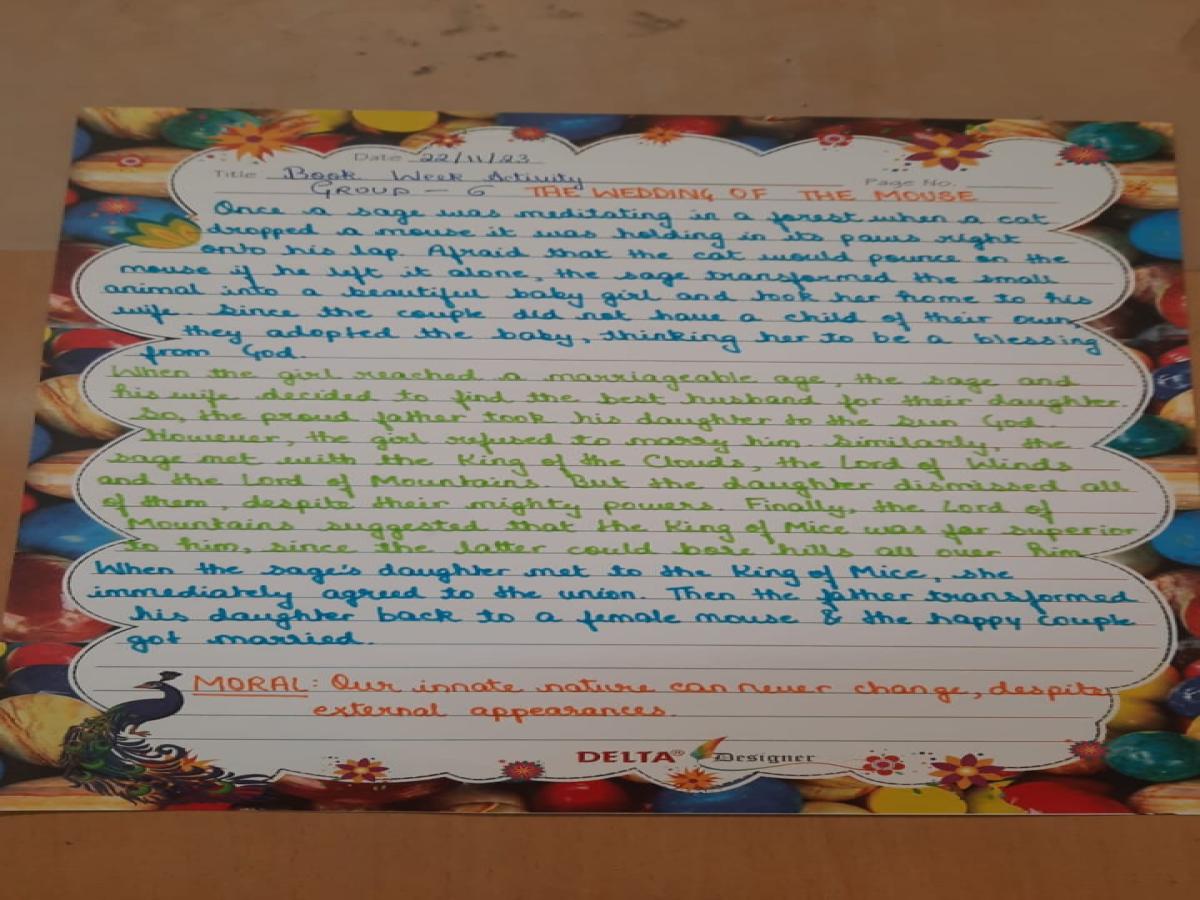 Date 22/11/23
Title Book Week Activity Page No.
GROUP - 6 THE WEDDING OF THE MOUSE
Once a sage was meditating in a forest when a cat
dropped a mouse it was holding in its paws right
onto his lap. Afraid that the cat would pounce on the
mouse if he left it alone, the sage transformed the small
animal into a beautiful baby girl and took her home to his
wife. Since the couple did not have a child of their own,
they adopted the baby, thinking her to be a blessing
from God.
When the girl reached a marriageable age, the sage and
his wife decided to find the best husband for their daughter.
So, the proud father took his daughter to the Sun God.
However, the girl refused to marry him. Similarly, the
sage met with the King of the Clouds, the Lord of Winds
and the Lord of Mountains. But the daughter dismissed all
of them, despite their mighty powers. Finally, the Lord of
Mountains suggested that the King of Mice was far superior
to him, since the latter could bore hills all over him
When the sage's daughter met to the King of Mice, she
immediately agreed to the union. Then the father transformed
his daughter back to a female mouse & the happy couple
got married.
MORAL: Our innate nature can never change, despite
external appearances.
DELTA® Designer